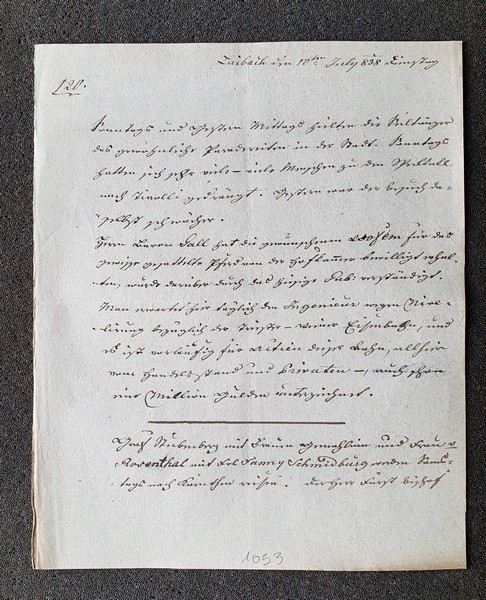 Laibach den 10ten July 838 Dienstag
120.
Sonntags und gestern Mittags hielten die Seiltänzer
das gewöhnliche Paradereiten in der Stadt. Sonntags
hatten sich sehr viele – viele Menschen zu dem Spektakl
nach Tivolli gedrängt. Gestern war der Besuch da-
selbst schwächer.
Herr Baron Gall hat die gewünschenen für das
gewisse gesattelte Pferd von der Hofkammer bewilligt erhal-
ten, wurde darüber durch das hiesige Gub: verständigt.
Man erwartet hier täglich den Ingenieur wegen Nivel-
lirung bezüglich der Triester – Wiener Eisenbahn, und
es ist vorläufig für Actien dieser Bahn, allhier
vom Handelsstand und Privaten –, auch schon
eine Million Gulden unterzeichnet.
Graf Stubenberg mit Frauen Gemahlin und Frau v
Rosenthal mit Frl Fanny Schmidburg werden Sams-
tags nach Kärnthen reisen. Der Herr Fürst Bischof
1053